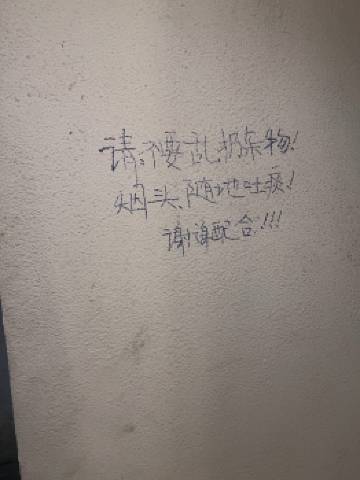 请不要乱扔杂物!
烟头、随地吐痰!
谢谢配合!!!